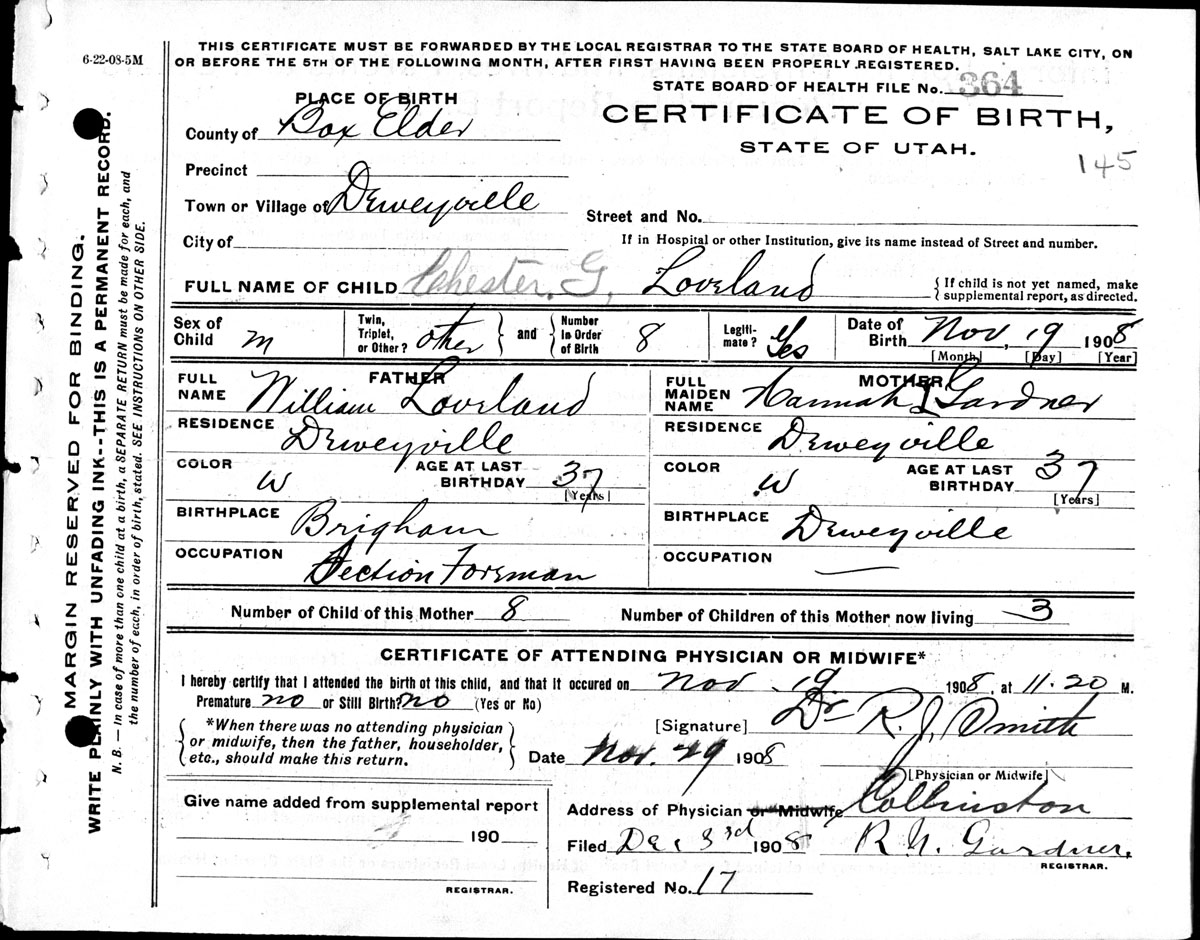 6-22-08-5M
THIS CERTIFICATE MUST BE FORWARDED BY THE LOCAL REGISTRAR TO THE STATE BOARD OF HEALTH, SALT LAKE CITY, ON
OR BEFORE THE 5TH OF THE FOLLOWING MONTH, AFTER FIRST HAVING BEEN PROPERLY REGISTERED.
STATE BOARD OF HEALTH FILE No. 364
PLACE OF BIRTH
CERTIFICATE OF BIRTH,
County of Box Elder
STATE OF UTAH.
145
Precinct
Town or Village of Deweyville
Street and No.
City of
If in Hospital or other Institution, give its name instead of Street and number.
FULL NAME OF CHILD Chester. G, Loveland
If child is not yet named, make
supplemental report, as directed.
Sex of Child m
Twin, Triplet, or Other? other and Number In Order of Birth 8
Legitimate? Yes
Date of Birth Nov, 19 1908
[Month] [Day] [Year]
FATHER
FULL NAME William Loveland
RESIDENCE Deweyville
COLOR W AGE AT LAST BIRTHDAY 37
[Years]
BIRTHPLACE Brigham
OCCUPATION Section Foreman
MOTHER
FULL MAIDEN NAME Hannah I Gardner
RESIDENCE Deweyville
COLOR W AGE AT LAST BIRTHDAY 37
[Years]
BIRTHPLACE Deweyville
OCCUPATION —
Number of Child of this Mother 8 Number of Children of this Mother now living 3
CERTIFICATE OF ATTENDING PHYSICIAN OR MIDWIFE*
I hereby certify that I attended the birth of this child, and that it occured on Nov. 19 1908, at 11.20 M.
Premature no or Still Birth? no (Yes or No)
*When there was no attending physician
or midwife, then the father, householder,
etc., should make this return.
[Signature] Dr R. J. Smith
Date Nov. 29 1908
[Physician or Midwife]
Give name added from supplemental report
190
REGISTRAR.
Address of Physician or Midwife Collinston
Filed Dec 3rd 1908 R. N. Gardner.
REGISTRAR.
Registered No. 17
MARGIN RESERVED FOR BINDING.
WRITE PLAINLY WITH UNFADING INK--THIS IS A PERMANENT RECORD.
N. B. — In case of more than one child at a birth, a SEPARATE RETURN must be made for each, and
the number of each, in order of birth, stated. SEE INSTRUCTIONS ON OTHER SIDE.